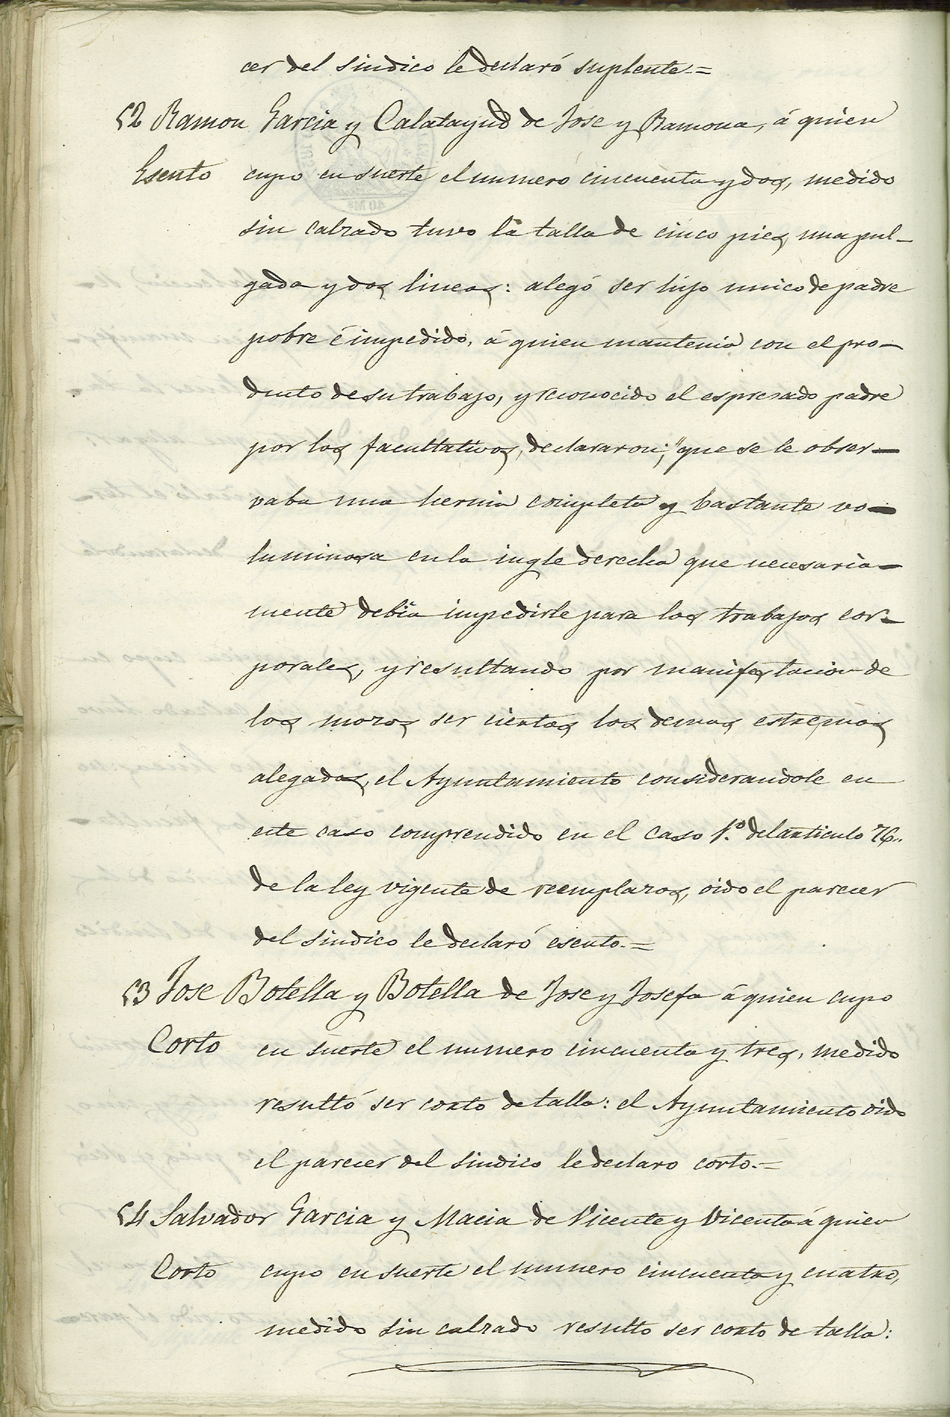 cer del sindico le declaró suplente.=
52 Ramon Garcia y Calatayud de Jose y Ramona, á quien
Esento cupo en suerte el numero cincuenta y dos, medido
sin calzado tuvo la talla de cinco pies, una pul-
gada y dos lineas: alegó ser hijo unico de padre
pobre é impedido, á quien mantenia con el pro-
ducto de su trabajo, y reconocido el espresado padre
por los facultativos, declararon; "que se le obser-
vaba una hernia completa y bastante vo-
luminosa en la ingle derecha que necesaria-
mente debia impedirle para los trabajos cor-
porales, y resultando por manifestacion de
los mozos ser ciertos los demas estremos
alegados, el Ayuntamiento considerandole en
este caso comprendido en el caso 1.º del articulo 76.
de la ley vigente de reemplazos, oido el parecer
del sindico le declaró esento.=
53 Jose Botella y Botella de Jose y Josefa á quien cupo
Corto en suerte el numero cincuenta y tres, medido
resultó ser corto de talla: el Ayuntamiento oido
el parecer del sindico le declaro corto.=
54 Salvador Garcia y Macia de Vicente y Vicenta á quien
Corto cupo en suerte el numero cincuenta y cuatro,
medido sin calzado resulto ser corto de talla: